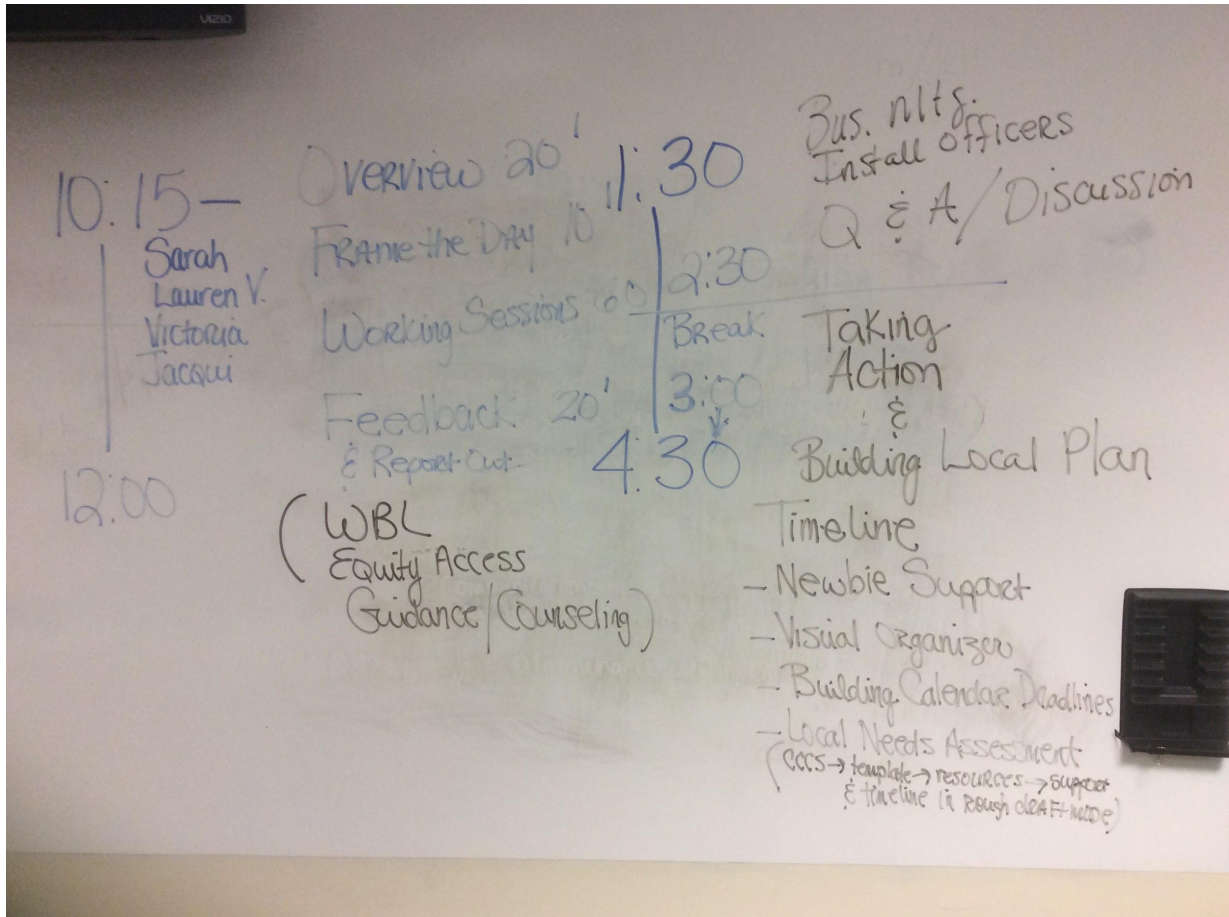 VIZIO
10:15 —
Sarah
Lauren V.
Victoria
Jacqui
12:00
Overview 20'
Frame the Day 10
Working Sessions 60
Feedback 20'
& Report Out
(WBL
Equity Access
Guidance/Counseling)
1:30
2:30
Break
3:00
4:30
Bus. Mtg.
Install Officers
Q & A/Discussion
Taking
Action
&
Building Local Plan
Timeline
- Newbie Support
- Visual Organizer
- Building Calendar Deadlines
- Local Needs Assessment
(CCCS → template → resources → support
& timeline in rough draft mode)